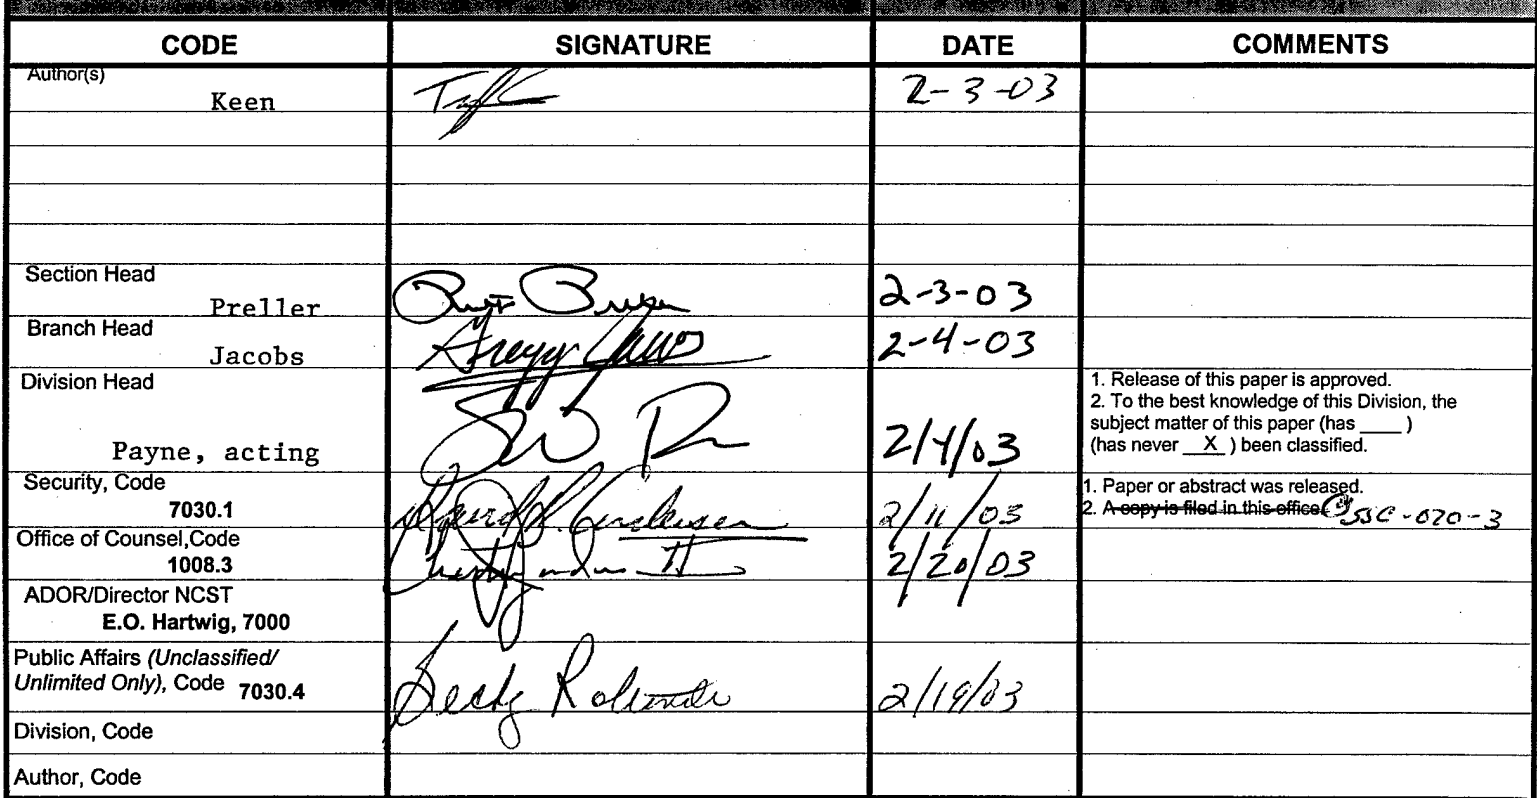 CODE SIGNATURE DATE COMMENTS
Author(s)
Keen 2-3-03
Section Head
Preller 2-3-03
Branch Head
Jacobs Gregg Jacobs 2-4-03
Division Head
Payne, acting 2/4/03
1. Release of this paper is approved.
2. To the best knowledge of this Division, the
subject matter of this paper (has ____ )
(has never __X__ ) been classified.
Security, Code
7030.1 2/11/03
1. Paper or abstract was released.
2. A copy is filed in this office SSC-020-3
Office of Counsel,Code
1008.3 2/20/03
ADOR/Director NCST
E.O. Hartwig, 7000
Public Affairs (Unclassified/
Unlimited Only), Code 7030.4 2/19/03
Division, Code
Author, Code